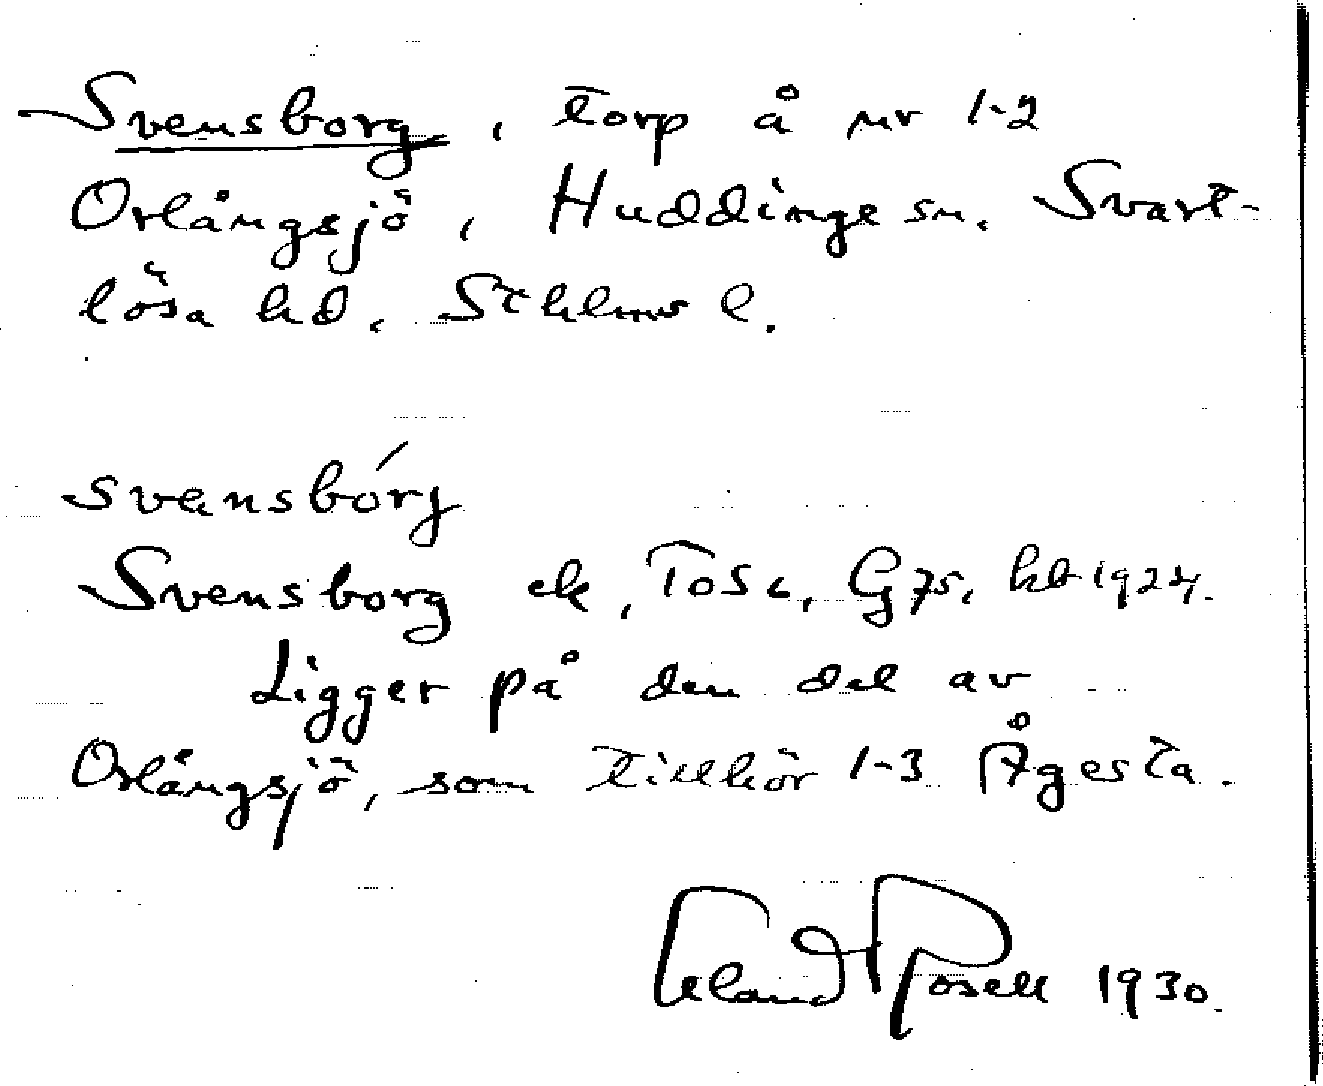 Svensborg, torp å nr 1-2
Orlångsjö, Huddinge sn. Svart-
lösa hd. Sthlms l.
svensbórj
Svensborg ek, Tosc, G 75, kb 1924.
Ligger på den del av
Orlångsjö, som tillhör 1-3 Ågesta.
Erland Rosell 1930.